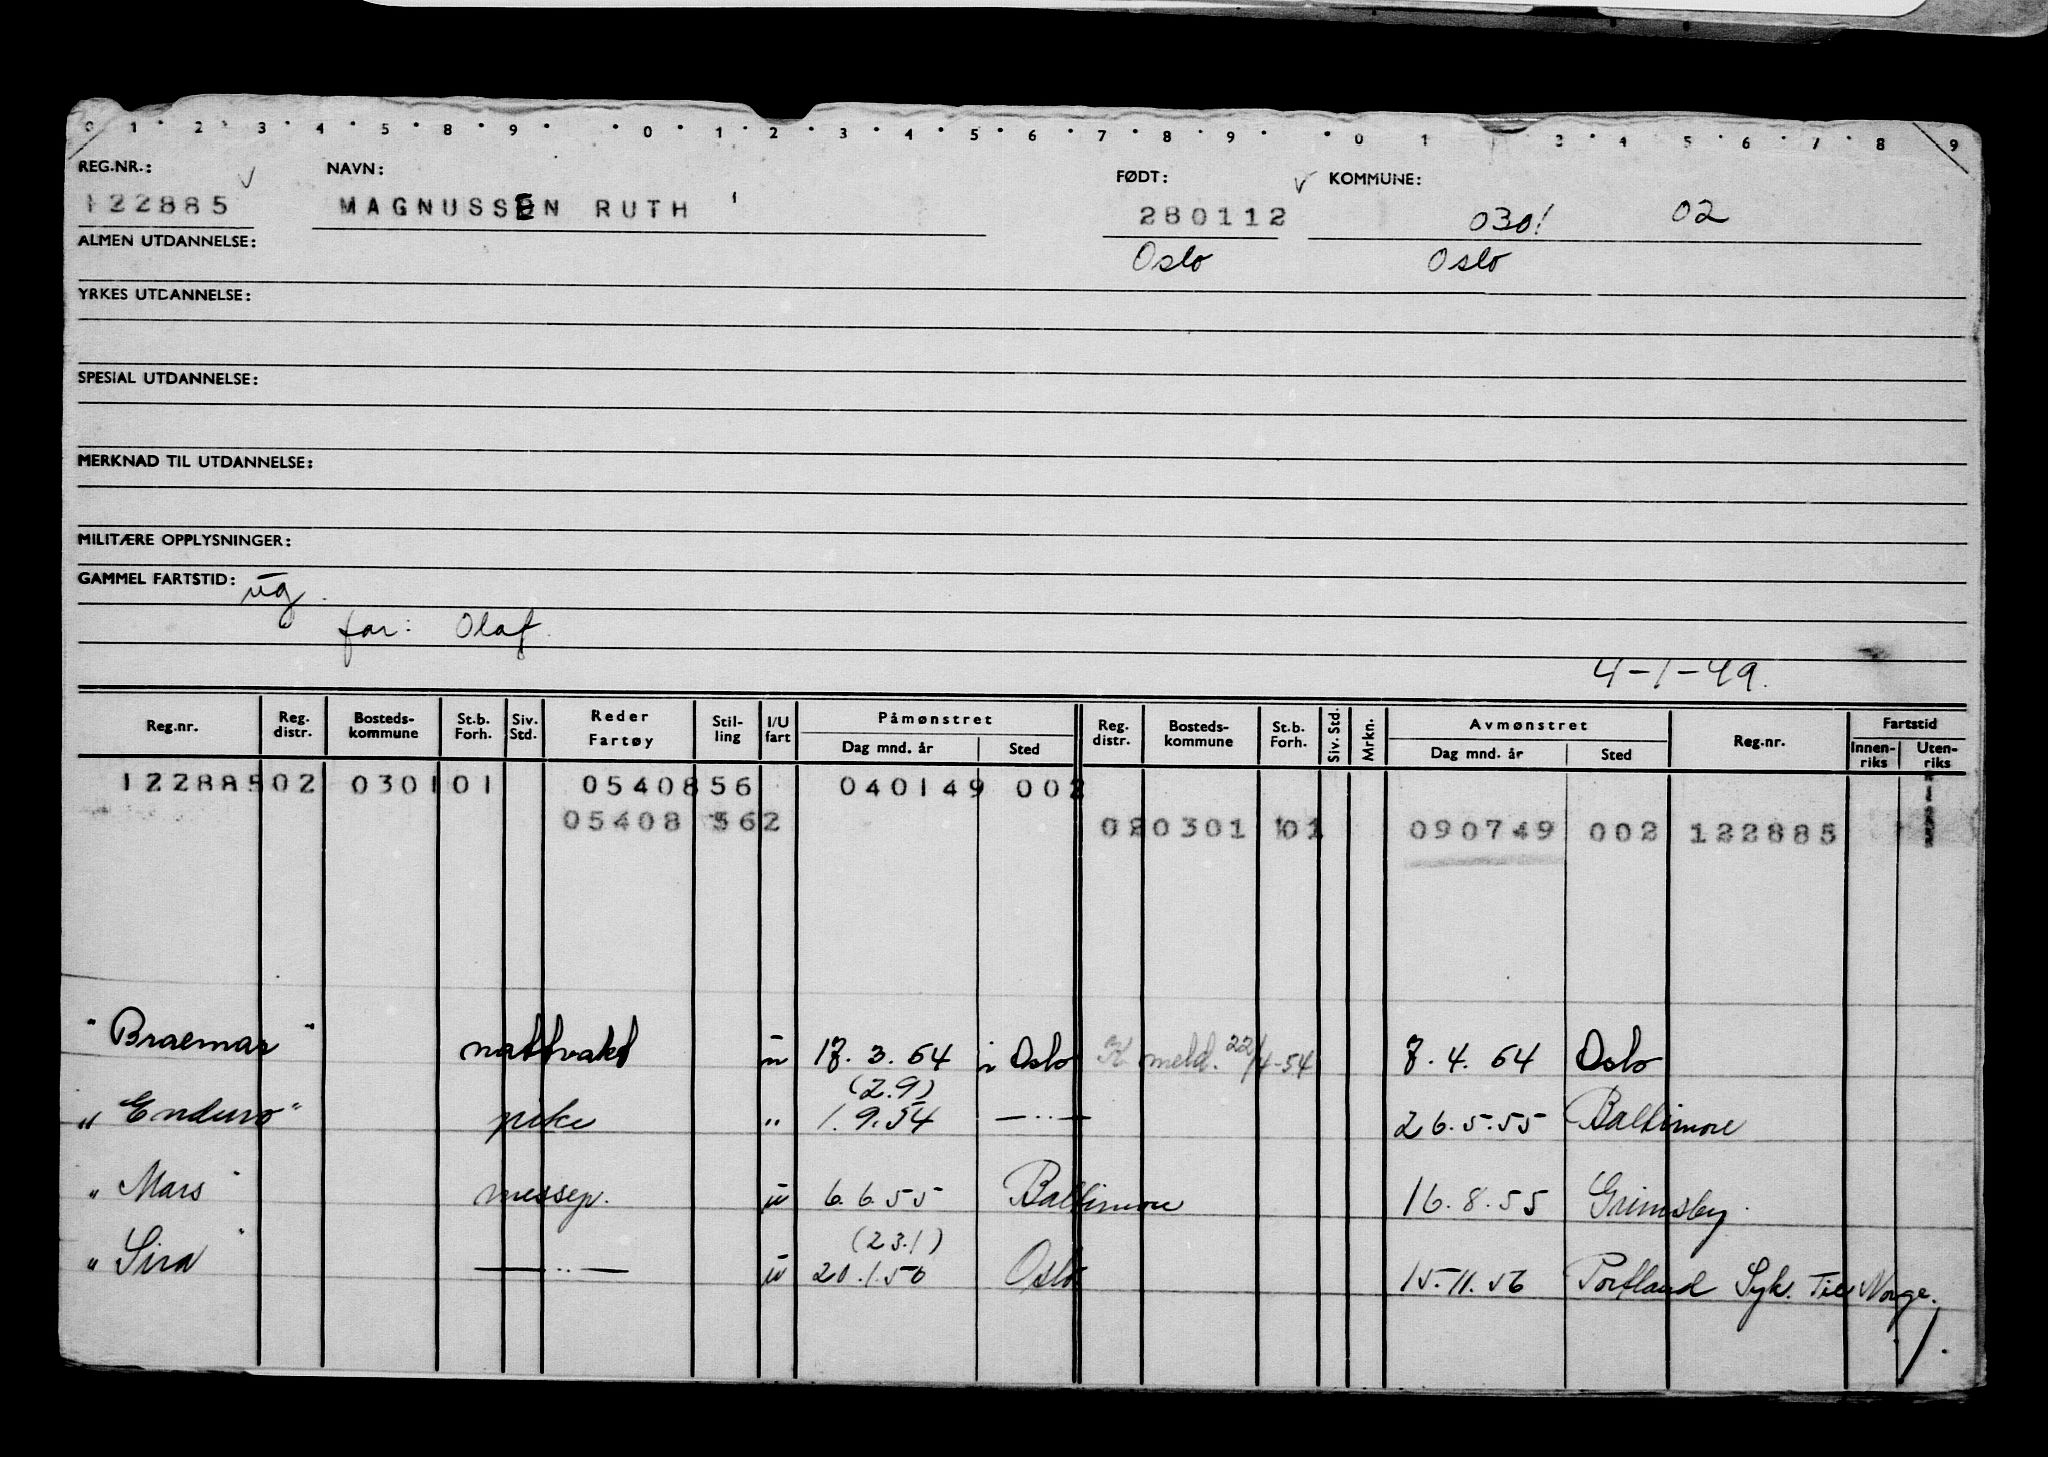 0 1 2 3 4 5 8 9 0 1 2 3 4 5 6 7 8 9 0 1 3 4 5 6 7 8 9
REG.NR.: NAVN: FØDT: KOMMUNE:
122885 MAGNUSSEN RUTH 280112 0301 02
ALMEN UTDANNELSE: Oslo Oslo
YRKES UTDANNELSE:
SPESIAL UTDANNELSE:
MERKNAD TIL UTDANNELSE:
MILITÆRE OPPLYSNINGER:
GAMMEL FARTSTID:
far: Olaf
4-1-49.
Reg.nr. Reg. distr. Bosteds-kommune St.b. Forh. Siv. Std. Reder Fartøy Stil-ling I/U fart Påmønstret Dag mnd. år Sted Reg. distr. Bosteds-kommune St.b. Forh. Siv. Std. Mrkn. Avmønstret Dag mnd. år Sted Reg.nr. Fartstid Innen-riks Uten-riks
122885 02 0301 01 05408 56 040149 002
05408 562 02 0301 01 090749 002 122885
"Braemar" nattvakt u 17. 3. 54 i Oslo K meld. 22/4-54 7. 4. 54 Oslo
(2.9)
"Enduro" pike " 1.9.54 — ·· — 26.5.55 Baltimore
"Mars" messep. u 6.6.55 Baltimore 16.8.55 Grimsby
(23.1)
"Sira" — ·· — u 20.1.56 Oslo 15.11.56 Portland Syk. Til Norge.